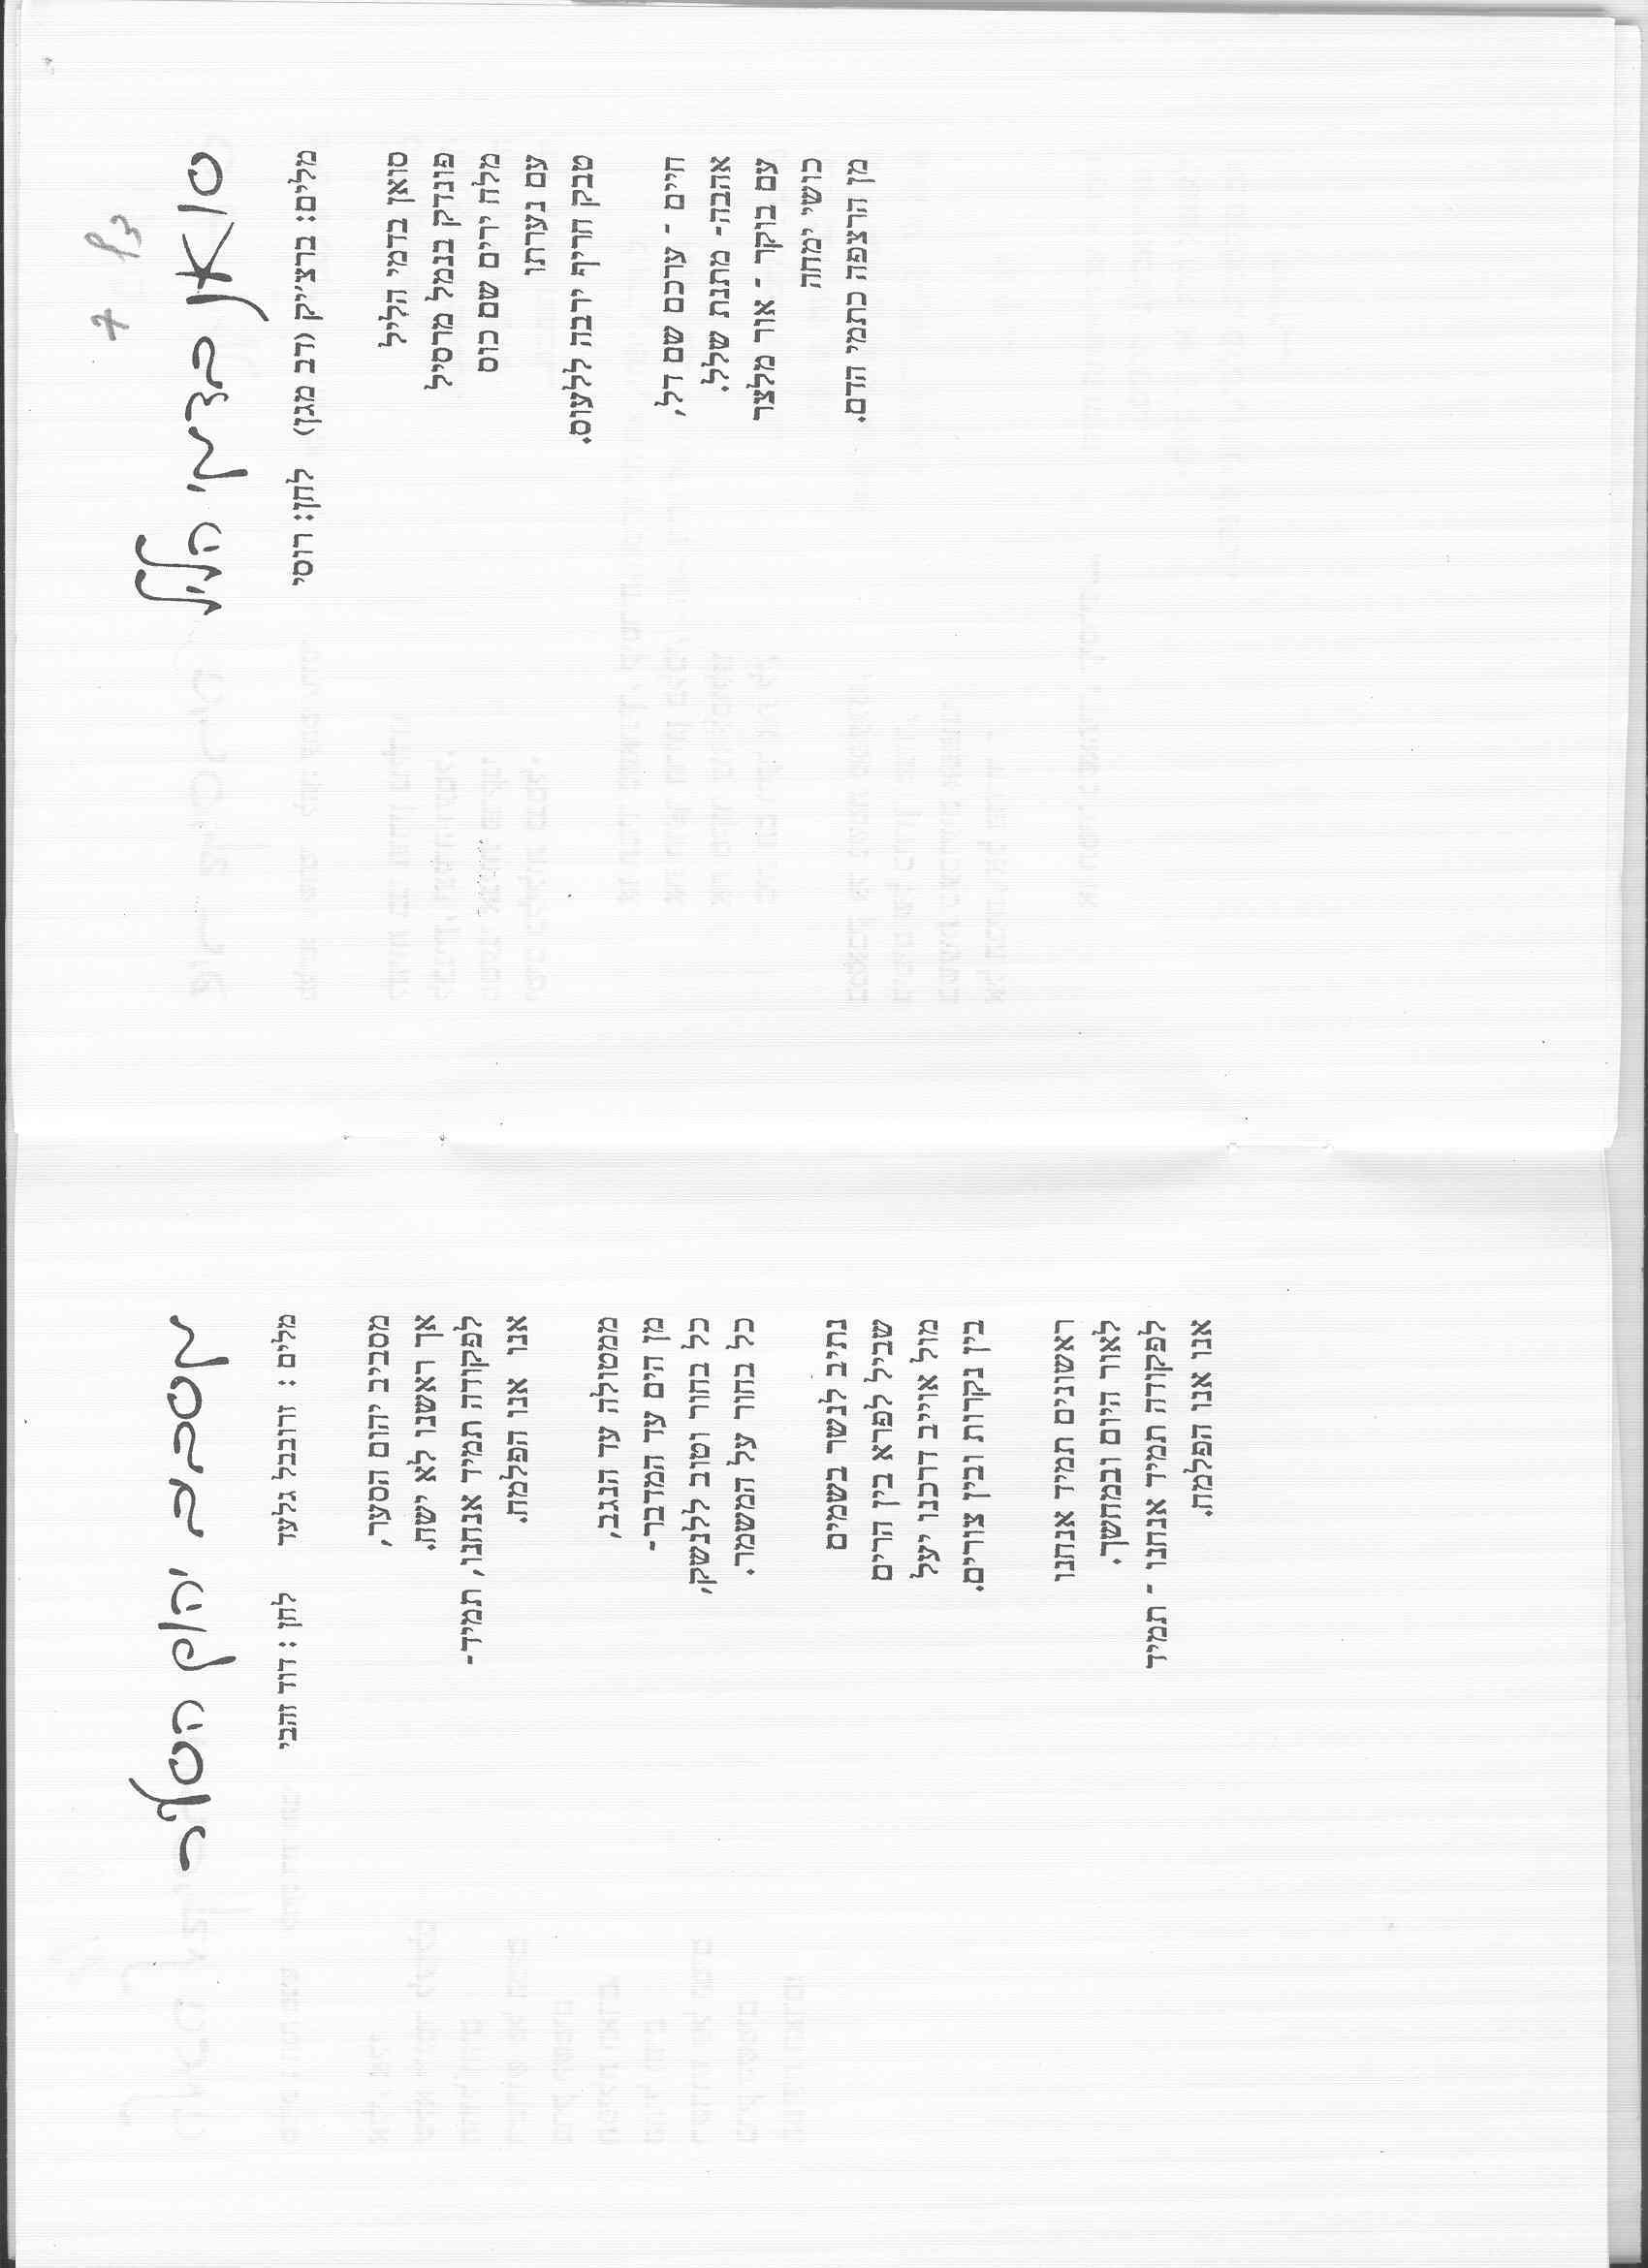 סואן בדמי הליל
מלים: ברצ׳יק (דב מגן) לחן: רוסי
סואן בדמי הליל
פונדק בנמל מרסיל
מלח ירים שם כוס
עם נערתו
טבק חריף ירבה ללעוס.
חיים - ערכם שם דל,
אהבה- מתנת שלל.
עם בוקר - אור מלצר
כושי ימחה
מן הרצפה כתמי הדם.
מסביב יהום הסער
מלים : זרובבל גלעד לחן : דוד זהבי
מסביב יהום הסער,
אך ראשנו לא ישח.
לפקודה תמיד אנחנו, תמיד-
אנו אנו הפלמח.
ממטולה עד הנגב,
מן הים עד המדבר-
כל בחור וטוב ללנשק,
כל בחור על המשמר.
נתיב לנשר בשמים
שביל לפרא בין הרים
מול אוייב דרכנו יעל
בין נקרות ובין צורים.
ראשונים תמיד אנחנו
לאור היום ובמחשך.
לפקודה תמיד אנחנו - תמיד
אנו אנו הפלמח.